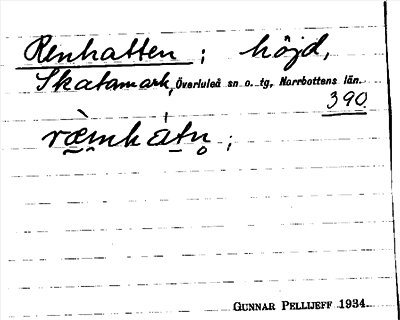 Renhatten ; höjd,
Skatamark, Överluleå sn o. tg. Norrbottens län.
390
ræ̀mkatn̥ ;
GUNNAR PELLIJEFF 1934.